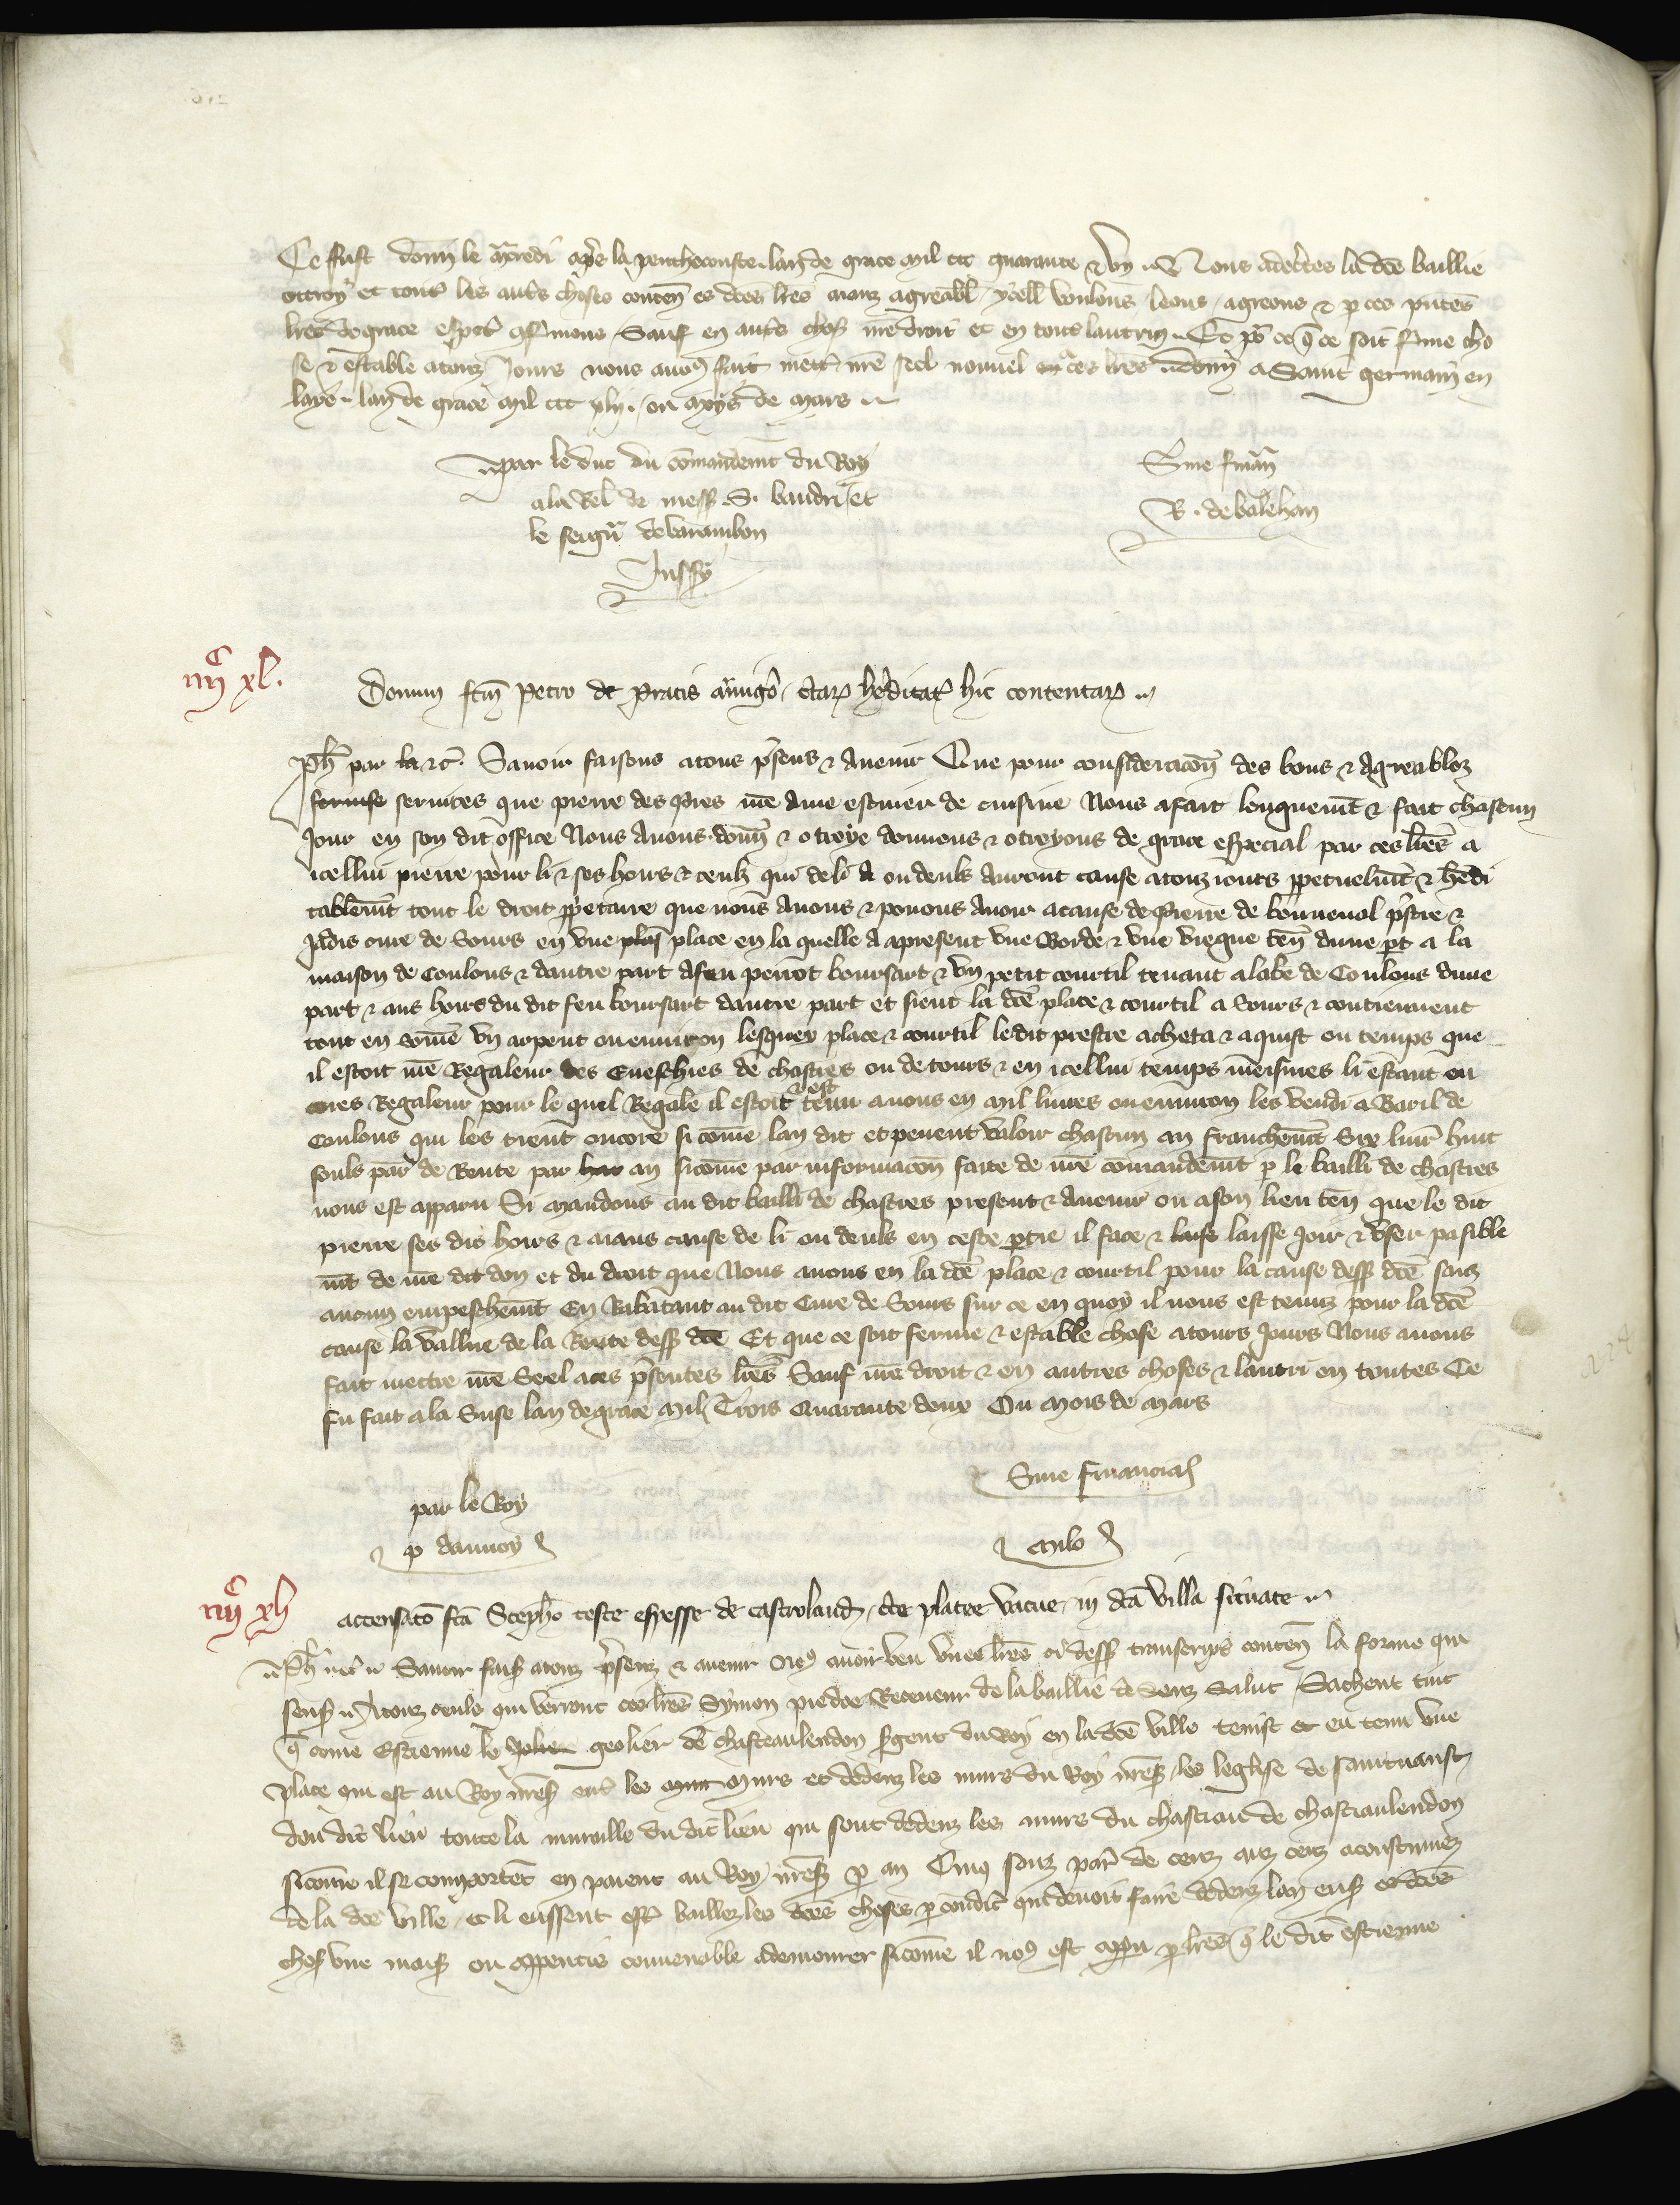 Ce fust donn le mcredi apres la penthecouste lan de grace mil ccc quarante & un Nous adecertes la dce baillie
ottroy et toutes les autres choses conten es dces lres aianz agreabl ycell voulons loons agreons & p ces pntes
lres de grace espcl confirmons Sauf en autres choses nre droit et en toutes lautruy Et pour ce que ce soit ferme cho
se & estable a touz jours nous avons fait mettre nre scel nouvel en ces lres donn a Saint germain en
laye lan de grace mil ccc xlij ou moys de mars
par le duc du comandemt du Roy
a la Rel de mess S. baudri et
le seignr de varambon
Jussy
Sine finan
R. de balehan
iiijc xl.
Donum fcm petro de pratis armigero ctarz hereditat hic contentarz
Ph par la &c Savoir faisons a tous presens & avenir Que pour consideracion des bons & agreablez
servise services que pierre des prés nre ame escuier de cuisine Nous a fait longuemt & fait chascun
Jour en son dit office Nous Avons donn & otroye donnons & otroyons de grace especial par ces lres a
icellui pierre pour li & ses hoirs & ceulz qui de li a ou deulz auront cause a touz jours perpetuelmt & heredi
tablemt tout le droit propretaire que nous avons & povons avoir a cause de pierre de bonneval prestre &
Jadis cure de Sours en une plas place en la quelle a apresent une Borde & une vieque ten dune part a la
maison de Coulons & dautre part a feu perrot boursart & un petit courtil tenant a labe de Coulons dune
part & aus hoirs du dit feu boursart dautre part et sient la dce place & courtil a Sours & contiennent
tout en some un arpent ou environ lesquex place & courtil ledit prestre acheta & aquist ou temps que
il estoit nre Regaleur des Eveschies de chartres ou de tours & en icellui temps meismes li estant en
cores Regaleur pour le quel Regale il estoit & est tenu a nous en mil livres ou environ les vendi a Baril de
Coulons qui les tient encore si come lan dit et pevent valoir chascun an franchemt Six livr huit
souls par de Rente par har an sicome par informacon faite de nre comandemt p le bailli de chartres
nous est apparu Si mandons au dit bailli de chartres present & avenir ou a son lieu ten que le dit
pierre ses diz hoirs & aians cause de li ou deuls en ceste partie il face & laise laisse joir & user pasible
mt de nre dit don et du droit que Nous avons en la dce place & courtil pour la cause dess dce sanz
aucun empeschemt En Rabatant au dit Cure de Sours sur ce en quoy il nous est tenuz pour la dce
cause la vallue de la Rente dess dce Et que ce soit ferme & estable chose a tours jours Nous avons
fait mectre nre Seel a ces presentes lres Sauf nre droit & en autres choses & lautri en toutes Ce
fu fait a la Suse lan de grace mil Trois Quarante deux Ou mois de mars
Sine financia
par le Roy
p daunoy
Milo
iiijc xlj
accensaco fca Stepho teste espesse de castrolandon cte platee vacue in dca villa situate
Ph &c Savoir fais a touz presenz & avenir nos avoir veu unes lres ci dess transcrips conten la forme qui
sensuit A touz ceuls qui verront ces lres Symon piedoe Receveur de la baillie de Senz Salut Sachent tuit
que come Estienne le jolier geolier de chasteaulendon sergent du roy en la dce ville tenist et eu tenu une
place qui est au Roy nres entre les mur murs et dedenz les murs du Roy nres les leglyse de saint
dou dit lieu toute la muraille du dit lieu qui sont dedenz les murs du chastiau de chastiaulendon
sicome il se comportet en paient au Roy nres p an Cinq souz par de cens aus cens acoustumez
de la dce ville et li eussent este baillez les dces choses p condic qui devoit faire dedenz lan ens es dces
chos une mais ou appentis convenable a demourer sicome il nos est aparu p lres que le dit estienne